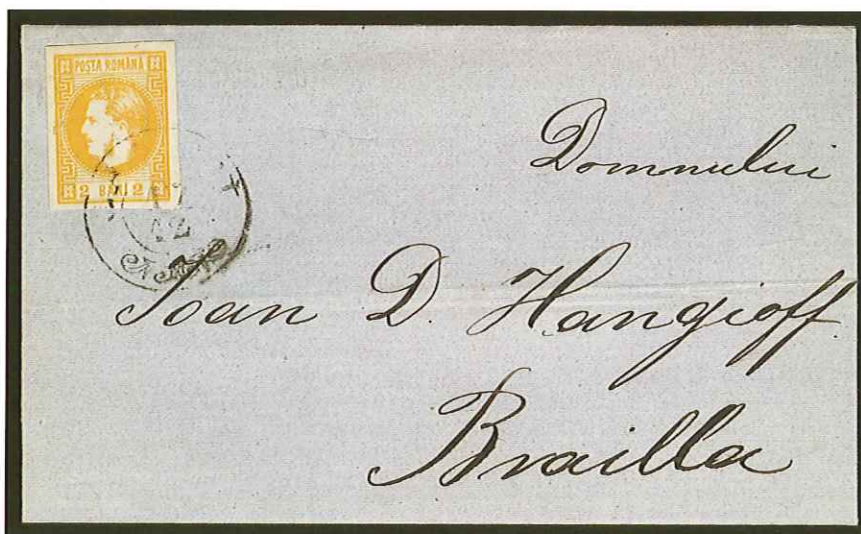 POSTA ROMÂNĂ
2 BANI 2
Domnului
Ioan D. Hangioff
Brailla